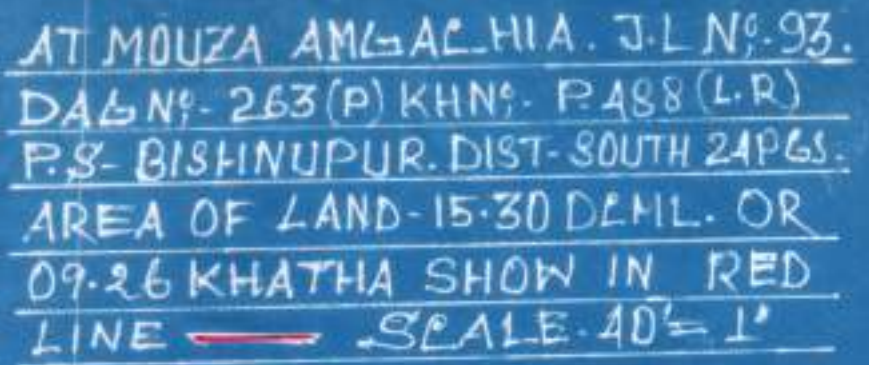 AT MOUZA AMGACHIA. J.L Nº.-93.
DAG Nº- 263 (P) KHNº- P.488 (L.R)
P.S- BISHNUPUR. DIST- SOUTH 24PGS.
AREA OF LAND-15.30 DCML. OR
09.26 KHATHA SHOW IN RED
LINE SCALE- 40'= 1"